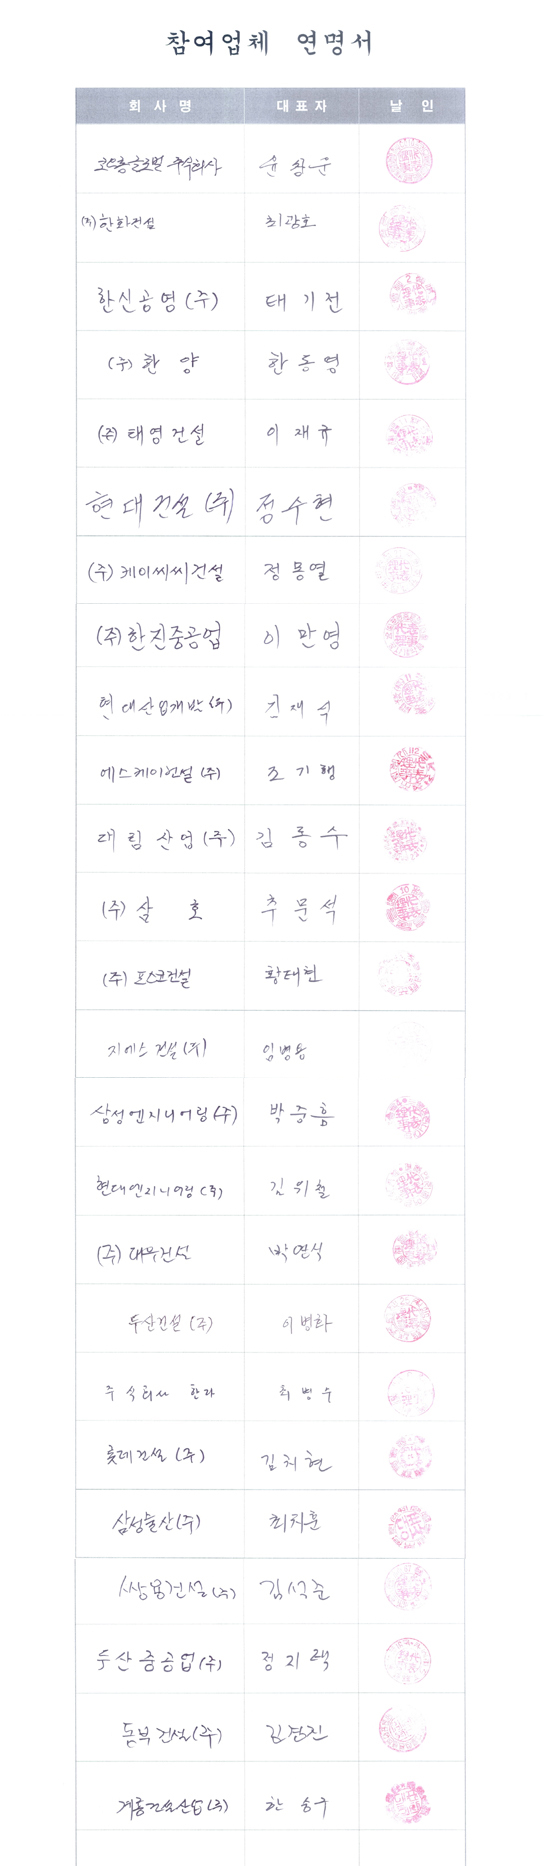 참여업체 연명서
회사명 대표자 날인
코오롱글로벌 주식회사 윤창운
(주)한화건설 최광호
한신공영(주) 태기전
(주)한양 한동영
(주)태영건설 이재규
현대건설(주) 정수현
(주)케이씨씨건설 정몽열
(주)한진중공업 이만영
현대산업개발(주) 김재식
에스케이건설(주) 조기행
대림산업(주) 김동수
(주)삼호 추문석
(주)포스코건설 황태현
지에스건설(주) 임병용
삼성엔지니어링(주) 박중흠
현대엔지니어링(주) 김위철
(주)대우건설 박영식
두산건설(주) 이병화
주식회사 한라 최병수
롯데건설(주) 김치현
삼성물산(주) 최치훈
쌍용건설(주) 김석준
두산중공업(주) 정지택
동부건설(주) 김경진
계룡건설산업(주) 한승구